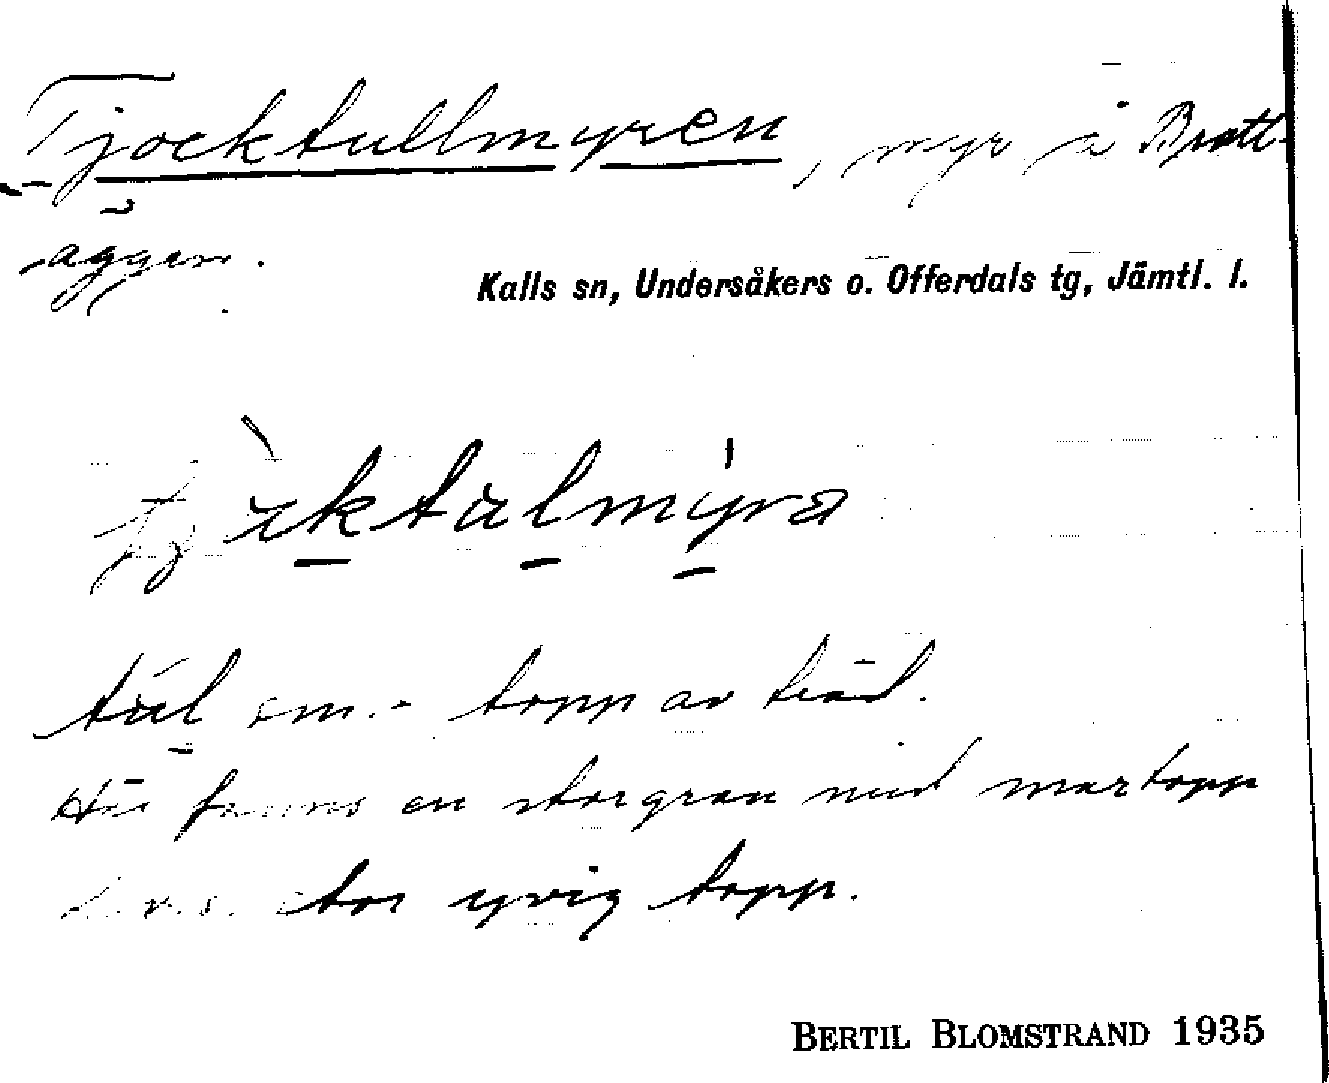 Tjocktullmyren, myr å Bratt-
äggen.
Kalls sn, Undersåkers o. Offerdals tg, Jämtl. l.
tul sm.- topp av träd.
Här fanns en storgran med martopp
d.v.s. stor yvig topp.
BERTIL BLOMSTRAND 1935